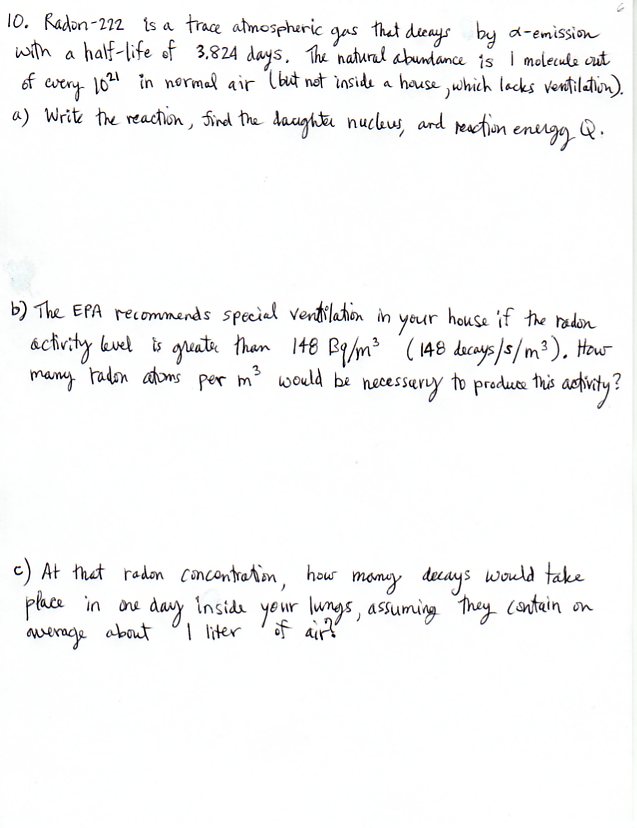 6
10. Radon-222 is a trace atmospheric gas that decays by α-emission
with a half-life of 3.824 days. The natural abundance is 1 molecule out
of every 10²¹ in normal air (but not inside a house, which lacks ventilation).
a) Write the reaction, find the daughter nucleus, and reaction energy Q.
b) The EPA recommends special ventilation in your house if the radon
activity level is greater than 148 Bq/m³ (148 decays/s/m³). How
many radon atoms per m³ would be necessary to produce this activity?
c) At that radon concentration, how many decays would take
place in one day inside your lungs, assuming they contain on
average about 1 liter of air?